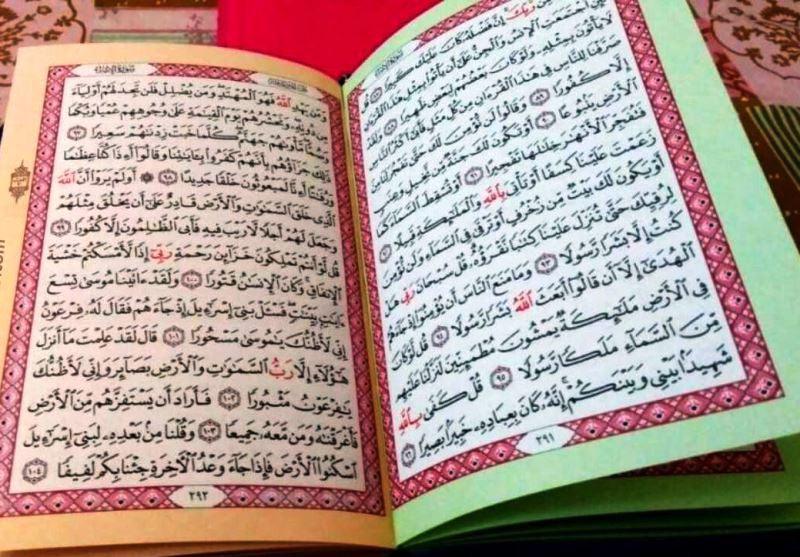 مِّن رَّبِّكَ إِنَّ فَضْلَهُۥ كَانَ عَلَيْكَ كَبِيرًا
لَّئِنِ ٱجْتَمَعَتِ ٱلْإِنسُ وَٱلْجِنُّ عَلَىٰٓ أَن يَأْتُوا۟ بِمِثْلِ هَٰذَا ٱلْقُرْءَانِ
لَا يَأْتُونَ بِمِثْلِهِۦ وَلَوْ كَانَ بَعْضُهُمْ لِبَعْضٍ ظَهِيرًا ٨٨ وَلَقَدْ
صَرَّفْنَا لِلنَّاسِ فِى هَٰذَا ٱلْقُرْءَانِ مِن كُلِّ مَثَلٍ فَأَبَىٰٓ أَكْثَرُ ٱلنَّاسِ
إِلَّا كُفُورًا ٨٩ وَقَالُوا۟ لَن نُّؤْمِنَ لَكَ حَتَّىٰ تَفْجُرَ لَنَا مِنَ
ٱلْأَرْضِ يَنۢبُوعًا ٩٠ أَوْ تَكُونَ لَكَ جَنَّةٌ مِّن نَّخِيلٍ وَعِنَبٍ
فَتُفَجِّرَ ٱلْأَنْهَٰرَ خِلَٰلَهَا تَفْجِيرًا ٩١ أَوْ تُسْقِطَ ٱلسَّمَآءَ كَمَا
زَعَمْتَ عَلَيْنَا كِسَفًا أَوْ تَأْتِىَ بِٱللَّهِ وَٱلْمَلَٰٓئِكَةِ قَبِيلًا ٩٢
أَوْ يَكُونَ لَكَ بَيْتٌ مِّن زُخْرُفٍ أَوْ تَرْقَىٰ فِى ٱلسَّمَآءِ وَلَن نُّؤْمِنَ
لِرُقِيِّكَ حَتَّىٰ تُنَزِّلَ عَلَيْنَا كِتَٰبًا نَّقْرَؤُهُۥ قُلْ سُبْحَانَ رَبِّى هَلْ
كُنتُ إِلَّا بَشَرًا رَّسُولًا ٩٣ وَمَا مَنَعَ ٱلنَّاسَ أَن يُؤْمِنُوٓا۟ إِذْ جَآءَهُمُ
ٱلْهُدَىٰٓ إِلَّآ أَن قَالُوٓا۟ أَبَعَثَ ٱللَّهُ بَشَرًا رَّسُولًا ٩٤ قُل لَّوْ كَانَ
فِى ٱلْأَرْضِ مَلَٰٓئِكَةٌ يَمْشُونَ مُطْمَئِنِّينَ لَنَزَّلْنَا عَلَيْهِم
مِّنَ ٱلسَّمَآءِ مَلَكًا رَّسُولًا ٩٥ قُلْ كَفَىٰ بِٱللَّهِ
شَهِيدًۢا بَيْنِى وَبَيْنَكُمْ إِنَّهُۥ كَانَ بِعِبَادِهِۦ خَبِيرًۢا بَصِيرًا ٩٦
٢٩١
سُورَةُ الإِسْرَاءِ
وَمَن يَهْدِ ٱللَّهُ فَهُوَ ٱلْمُهْتَدِ وَمَن يُضْلِلْ فَلَن تَجِدَ لَهُمْ أَوْلِيَآءَ
مِن دُونِهِۦ وَنَحْشُرُهُمْ يَوْمَ ٱلْقِيَٰمَةِ عَلَىٰ وُجُوهِهِمْ عُمْيًا وَبُكْمًا
وَصُمًّا مَّأْوَىٰهُمْ جَهَنَّمُ كُلَّمَا خَبَتْ زِدْنَٰهُمْ سَعِيرًا ٩٧
ذَٰلِكَ جَزَآؤُهُم بِأَنَّهُمْ كَفَرُوا۟ بِـَٔايَٰتِنَا وَقَالُوٓا۟ أَءِذَا كُنَّا عِظَٰمًا
وَرُفَٰتًا أَءِنَّا لَمَبْعُوثُونَ خَلْقًا جَدِيدًا ٩٨ ۞ أَوَلَمْ يَرَوْا۟ أَنَّ ٱللَّهَ
ٱلَّذِى خَلَقَ ٱلسَّمَٰوَٰتِ وَٱلْأَرْضَ قَادِرٌ عَلَىٰٓ أَن يَخْلُقَ مِثْلَهُمْ
وَجَعَلَ لَهُمْ أَجَلًا لَّا رَيْبَ فِيهِ فَأَبَى ٱلظَّٰلِمُونَ إِلَّا كُفُورًا ٩٩
قُل لَّوْ أَنتُمْ تَمْلِكُونَ خَزَآئِنَ رَحْمَةِ رَبِّىٓ إِذًا لَّأَمْسَكْتُمْ خَشْيَةَ
ٱلْإِنفَاقِ وَكَانَ ٱلْإِنسَٰنُ قَتُورًا ١٠٠ وَلَقَدْ ءَاتَيْنَا مُوسَىٰ تِسْعَ
ءَايَٰتٍۭ بَيِّنَٰتٍ فَسْـَٔلْ بَنِىٓ إِسْرَٰٓءِيلَ إِذْ جَآءَهُمْ فَقَالَ لَهُۥ فِرْعَوْنُ
إِنِّى لَأَظُنُّكَ يَٰمُوسَىٰ مَسْحُورًا ١٠١ قَالَ لَقَدْ عَلِمْتَ مَآ أَنزَلَ
هَٰٓؤُلَآءِ إِلَّا رَبُّ ٱلسَّمَٰوَٰتِ وَٱلْأَرْضِ بَصَآئِرَ وَإِنِّى لَأَظُنُّكَ
يَٰفِرْعَوْنُ مَثْبُورًا ١٠٢ فَأَرَادَ أَن يَسْتَفِزَّهُم مِّنَ ٱلْأَرْضِ
فَأَغْرَقْنَٰهُ وَمَن مَّعَهُۥ جَمِيعًا ١٠٣ وَقُلْنَا مِنۢ بَعْدِهِۦ لِبَنِىٓ إِسْرَٰٓءِيلَ
ٱسْكُنُوا۟ ٱلْأَرْضَ فَإِذَا جَآءَ وَعْدُ ٱلْءَاخِرَةِ جِئْنَا بِكُمْ لَفِيفًا ١٠٤
٢٩٢